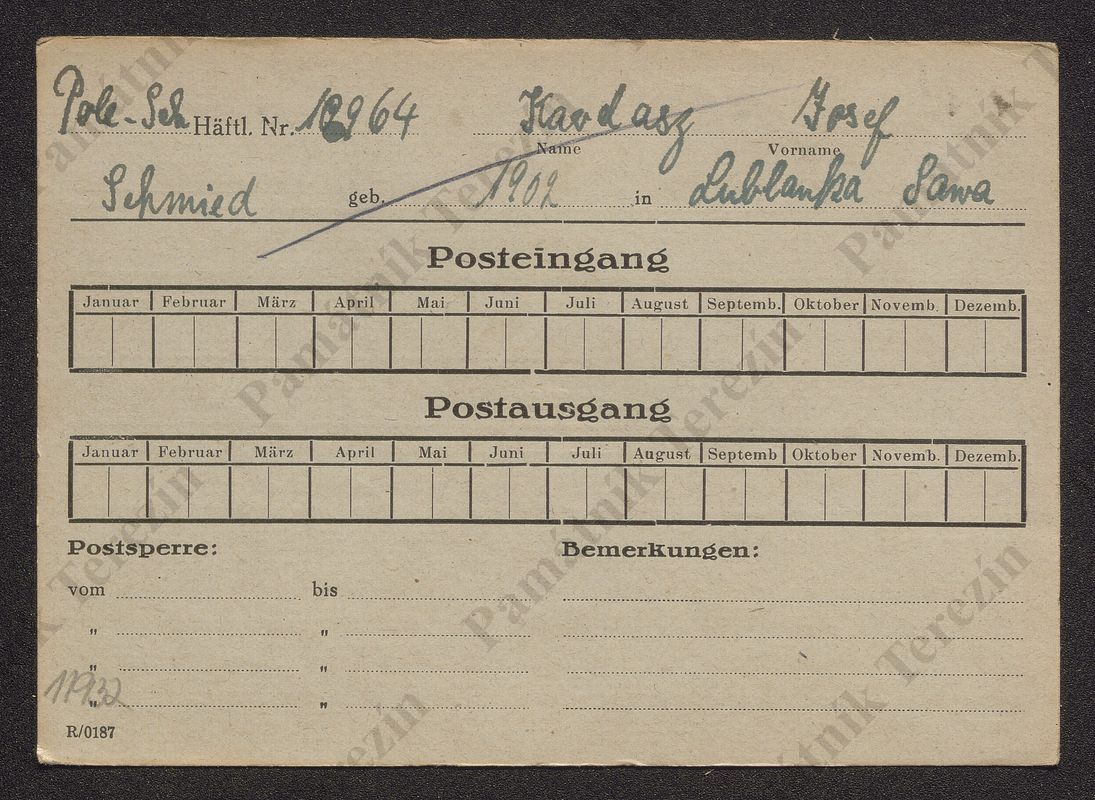 Pole-Sch Häftl. Nr. 12964 Kardasz Josef
Name Vorname
Schmied geb. 1902 in Lublanka Sawa
Posteingang
Januar Februar März April Mai Juni Juli August Septemb. Oktober Novemb. Dezemb.
Postausgang
Januar Februar März April Mai Juni Juli August Septemb Oktober Novemb. Dezemb.
Postsperre: Bemerkungen:
vom bis
" "
" "
" "
11932
R/0187
Památník Terezín
Památník Terezín
Památník Terezín
Památník Terezín